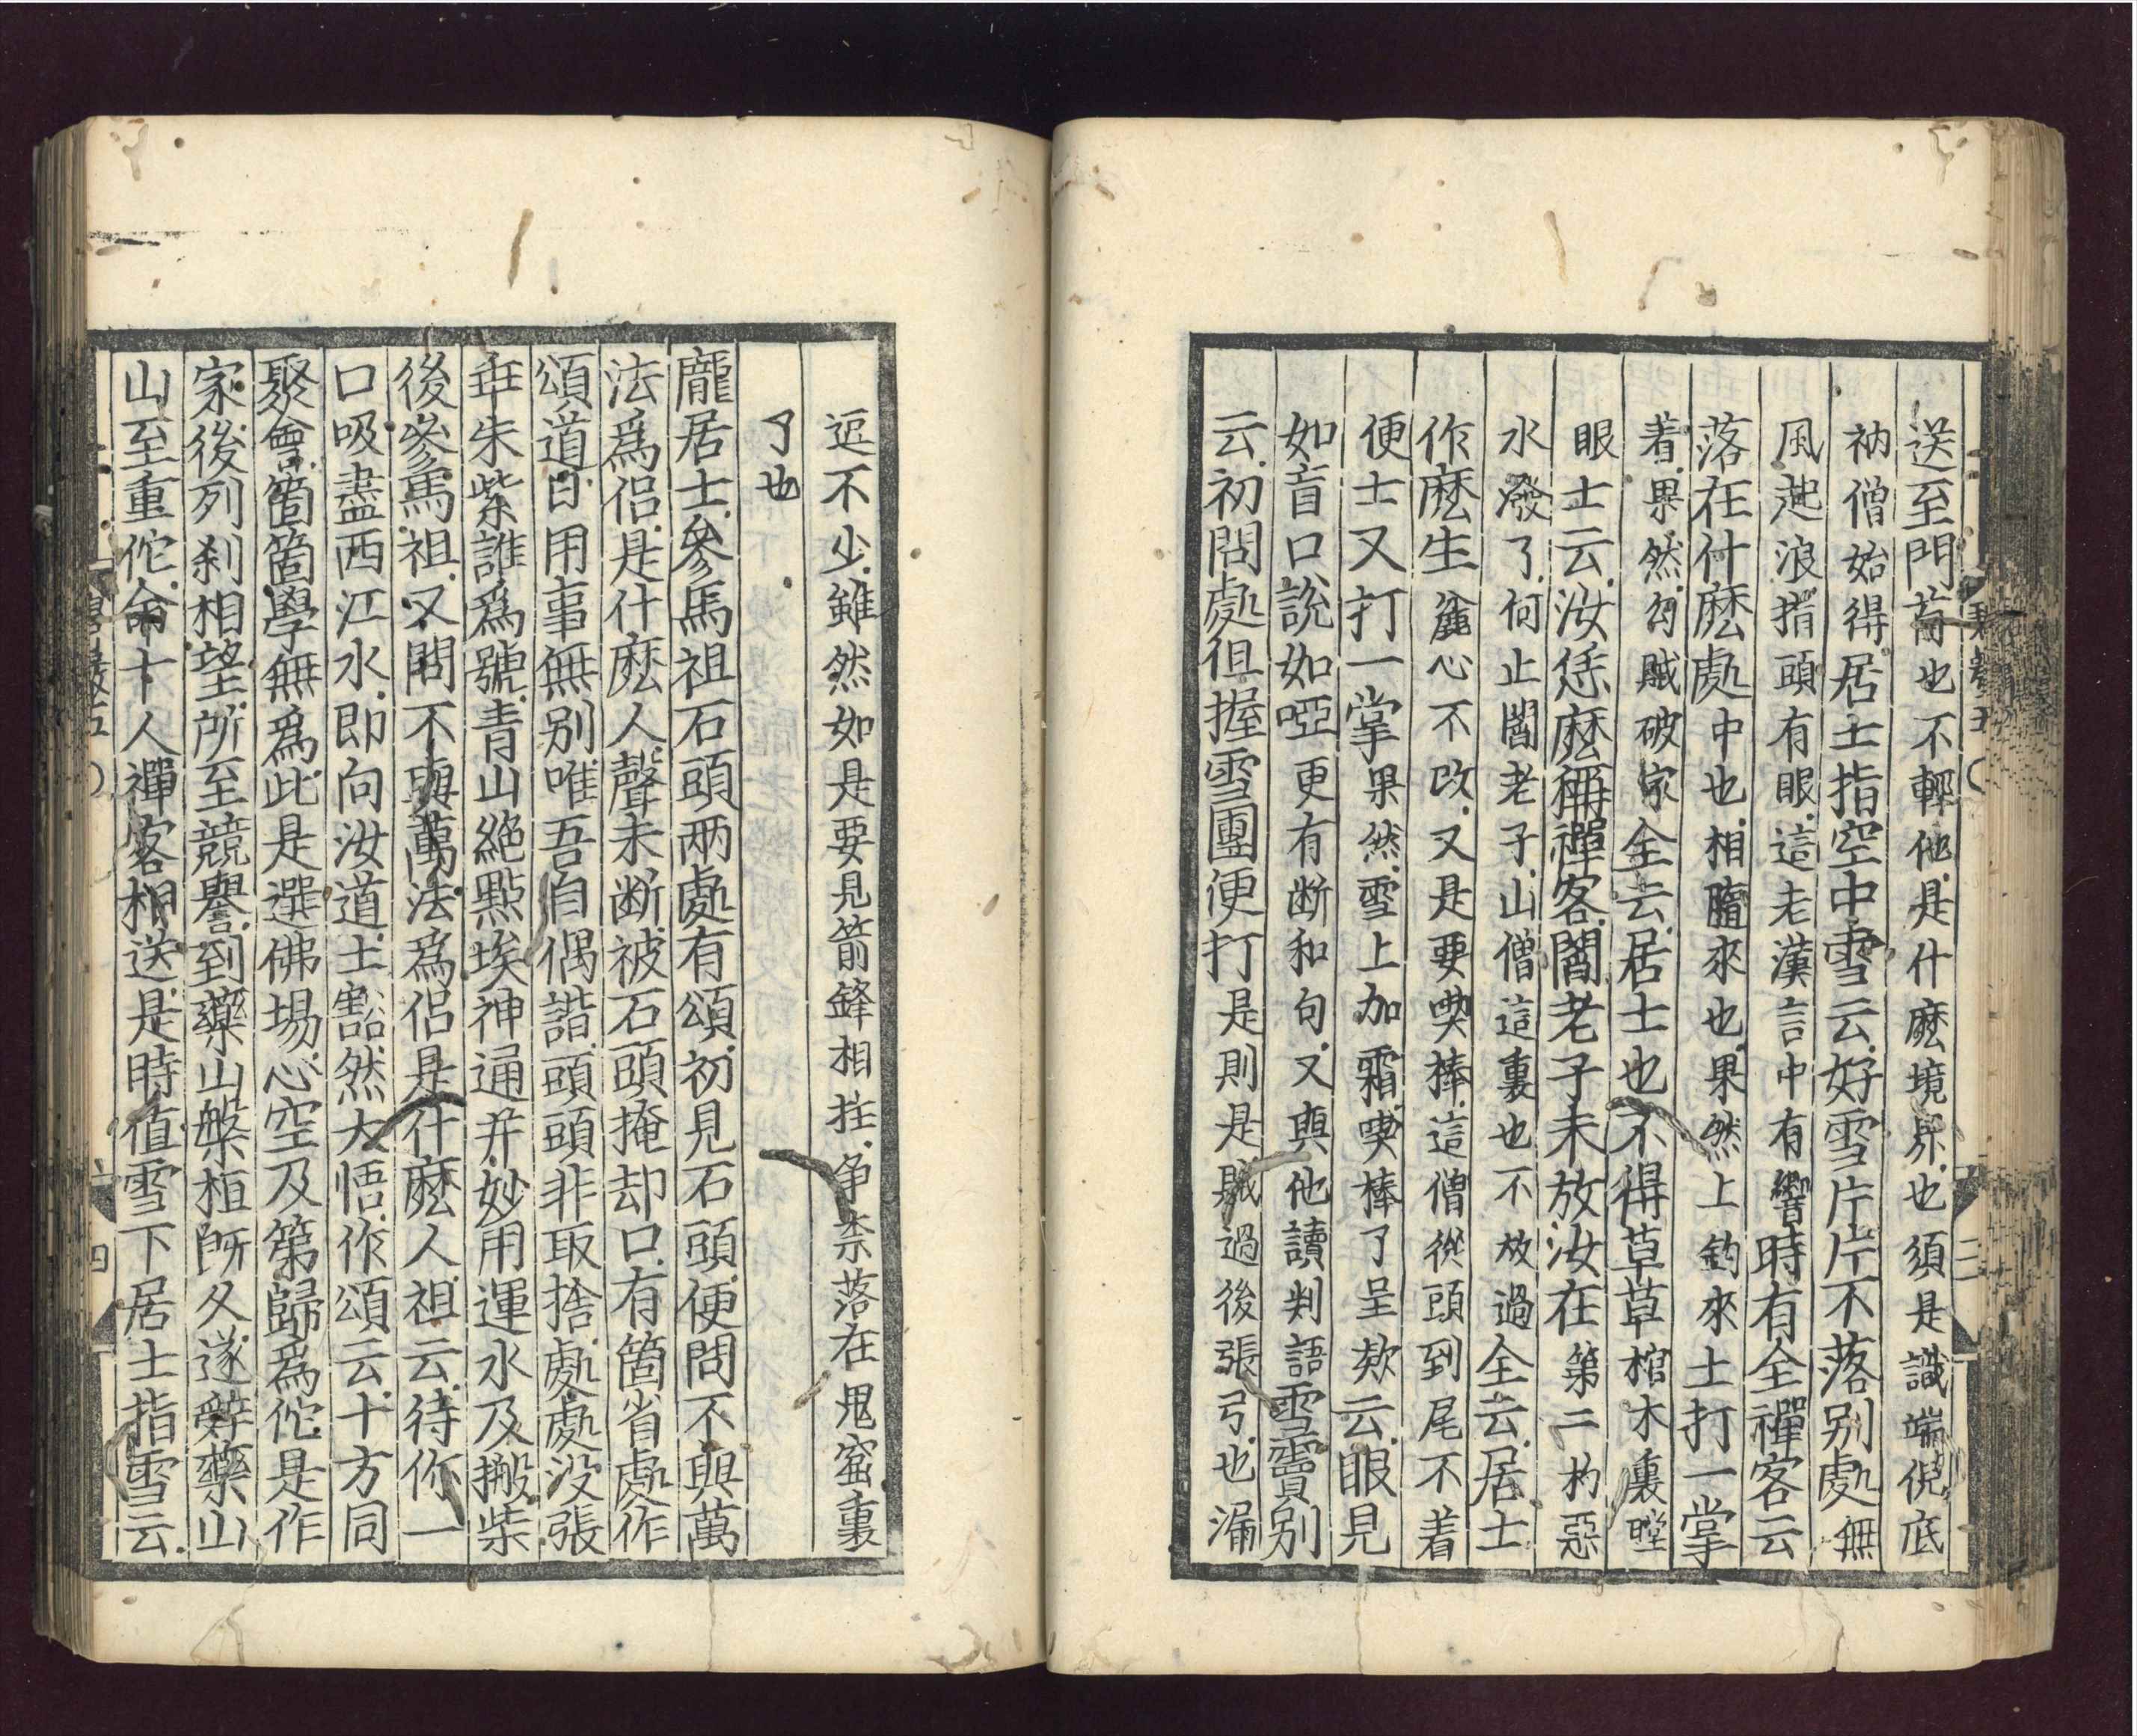 送至門首也不輕他是什麽境界也須是識端倪底
衲僧始得居士指空中雪云好雪片片不落別處無
風起浪指頭有眼這老漢言中有響時有全禪客云
落在什麽處中也相隨來也果然上鈎來士打一掌
着果然勾賊破家全云居士也不得草草棺木裏瞠
眼士云汝恁麽稱禪客閻老子未放汝在第二杓惡
水潑了何止閻老子山僧這裏也不放過全云居士
作麽生麁心不改又是要喫棒這僧從頭到尾不着
便士又打一掌果然雪上加霜喫棒了呈欵云眼見
如盲口說如啞更有断和句又與他讀判語雪竇別
云初問處但握雪團便打是則是賊過後張弓也漏
逗不少雖然如是要見箭鋒相拄爭柰落在鬼窟裏
了也
龐居士參馬祖石頭兩處有頌初見石頭便問不與萬
法爲侶是什麽人聲未断被石頭掩却口有箇省處作
頌道日用事無別唯吾自偶諧頭頭非取捨處處沒張
乖朱紫誰爲號青山絶點埃神通并妙用運水及搬柴
後參馬祖又問不與萬法爲侶是什麽人祖云待你一
口吸盡西江水即向汝道士豁然大悟作頌云十方同
聚會箇箇學無爲此是選佛場心空及第歸爲佗是作
家後列刹相望所至競譽到藥山盤桓旣久遂辭藥山
山至重佗命十人禪客相送是時值雪下居士指雪云